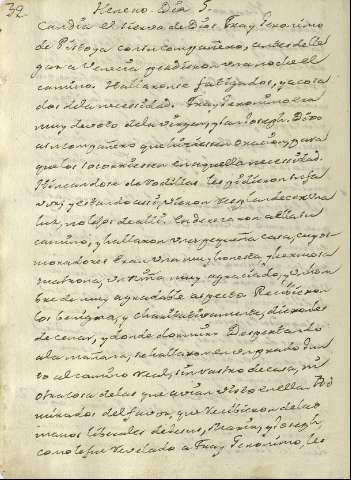 32 Heneno. Dia 5.
Candia el siervo de Dios Fray Geronimo
de Pistoya con su compañero, antes de lle
gar a Venecia perdieron una noche el
camino. Hallaronse fatigados, y acosa
dos de la necesidad. Fray Geronimo era
muy devoto de la Virgen, y San Joseph. Dixo
a su compañero que hiciesen oracion, para
que los socorriesen en aquella necesidad.
Hincandose de rodillas les pidieron su fa
vor, y estando assi, vieron resplandecer una
luz, no lejos de alli. Endereçaron allà su
camino, y hallaron una pequeña casa, cuyos
moradores eran una muy honesta, y hermosa
matrona, un niño muy agraciado, y un hom
bre de muy agradable aspecto. Recibieron
los benigna, y charitativamente, dieronles
de cenar, y donde dormir. Despertando
a la mañana, se hallaron en un prado jun
to al camino real, sin rastro de casa, ni
otra cosa de las que avian visto en ella. Ad
mirados del favor, que recibieron de las
manos liberales de Jesus, Maria, y Joseph,
como le fue revelado a Fray Geronimo, les